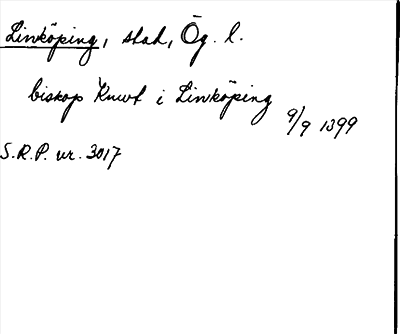 Linköping, stad, Ög. l.
biskop Knut i Linköping
9/9 1399
S.R.P. nr. 3017